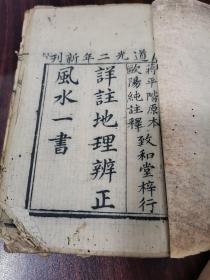 道光二年新刊
蔣平階原本
歐陽純註釋
致和堂梓行
詳註地理辨正
風水一書